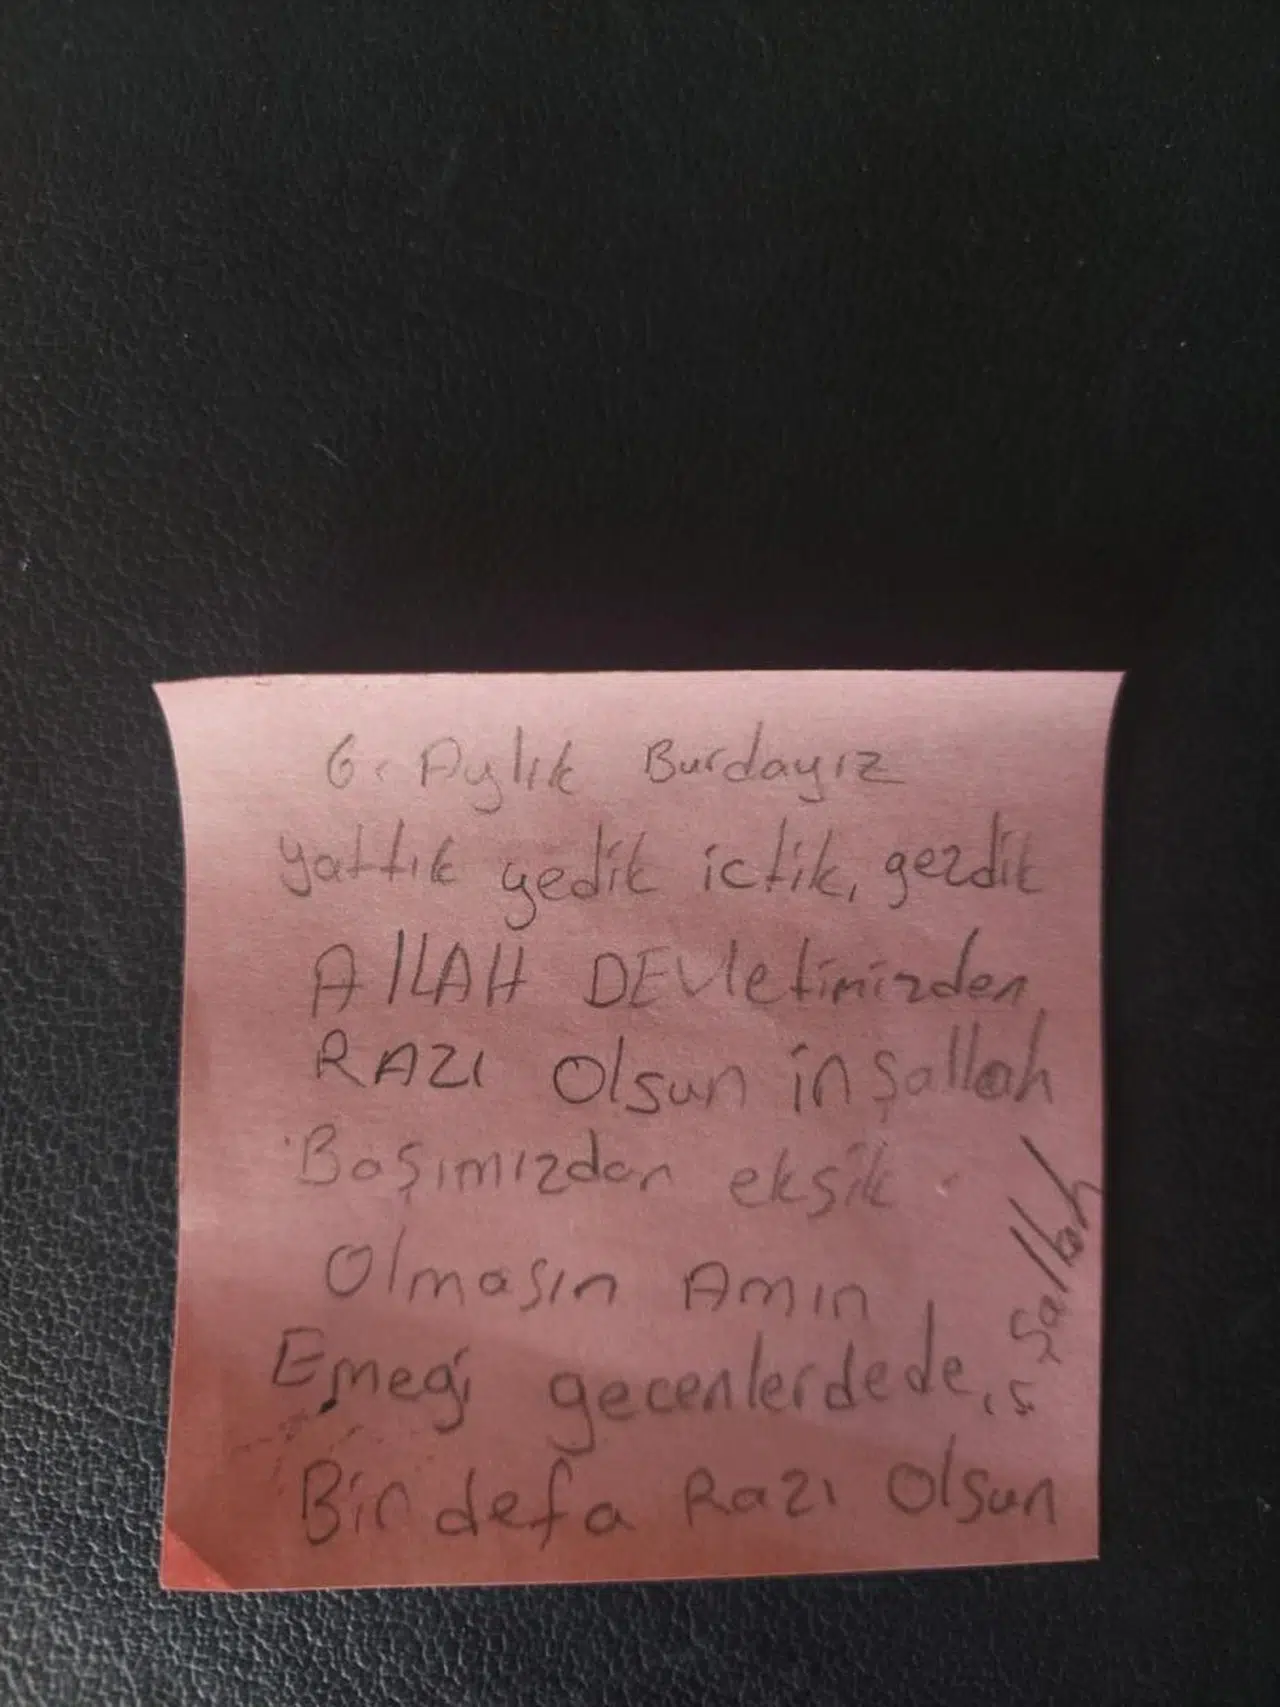 6. Aylık Burdayız
yattık yedik ictik, gezdik
AllAH DEVletimizden
RAZI Olsun inşallah
Başımızdan ekşik
Olmasın Amın
Emeği gecenlerdede, işallah
Bin defa Razı Olsun